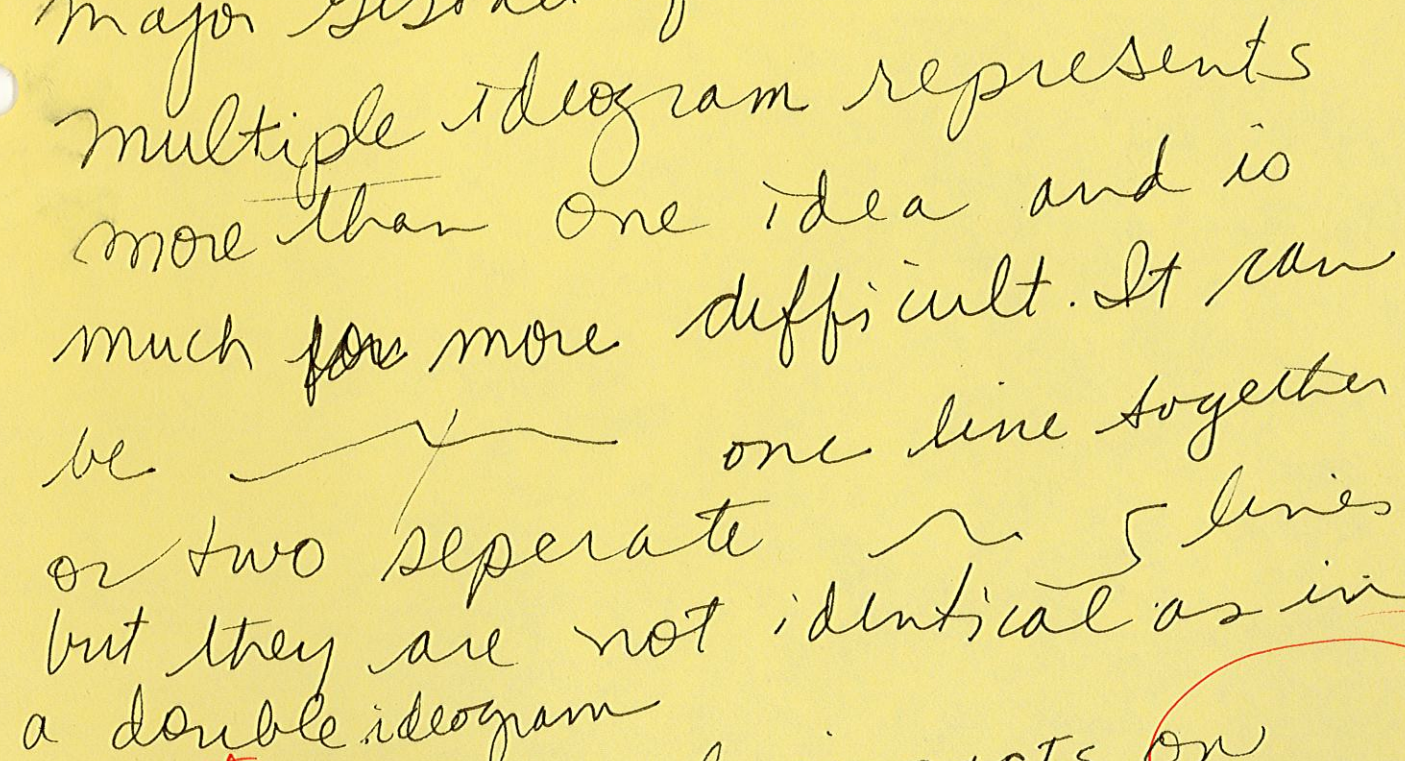 major
Multiple ideogram represents
more than one idea and is
much more difficult. It can
be one line together
or two seperate lines
but they are not identical as in
a double ideogram
on